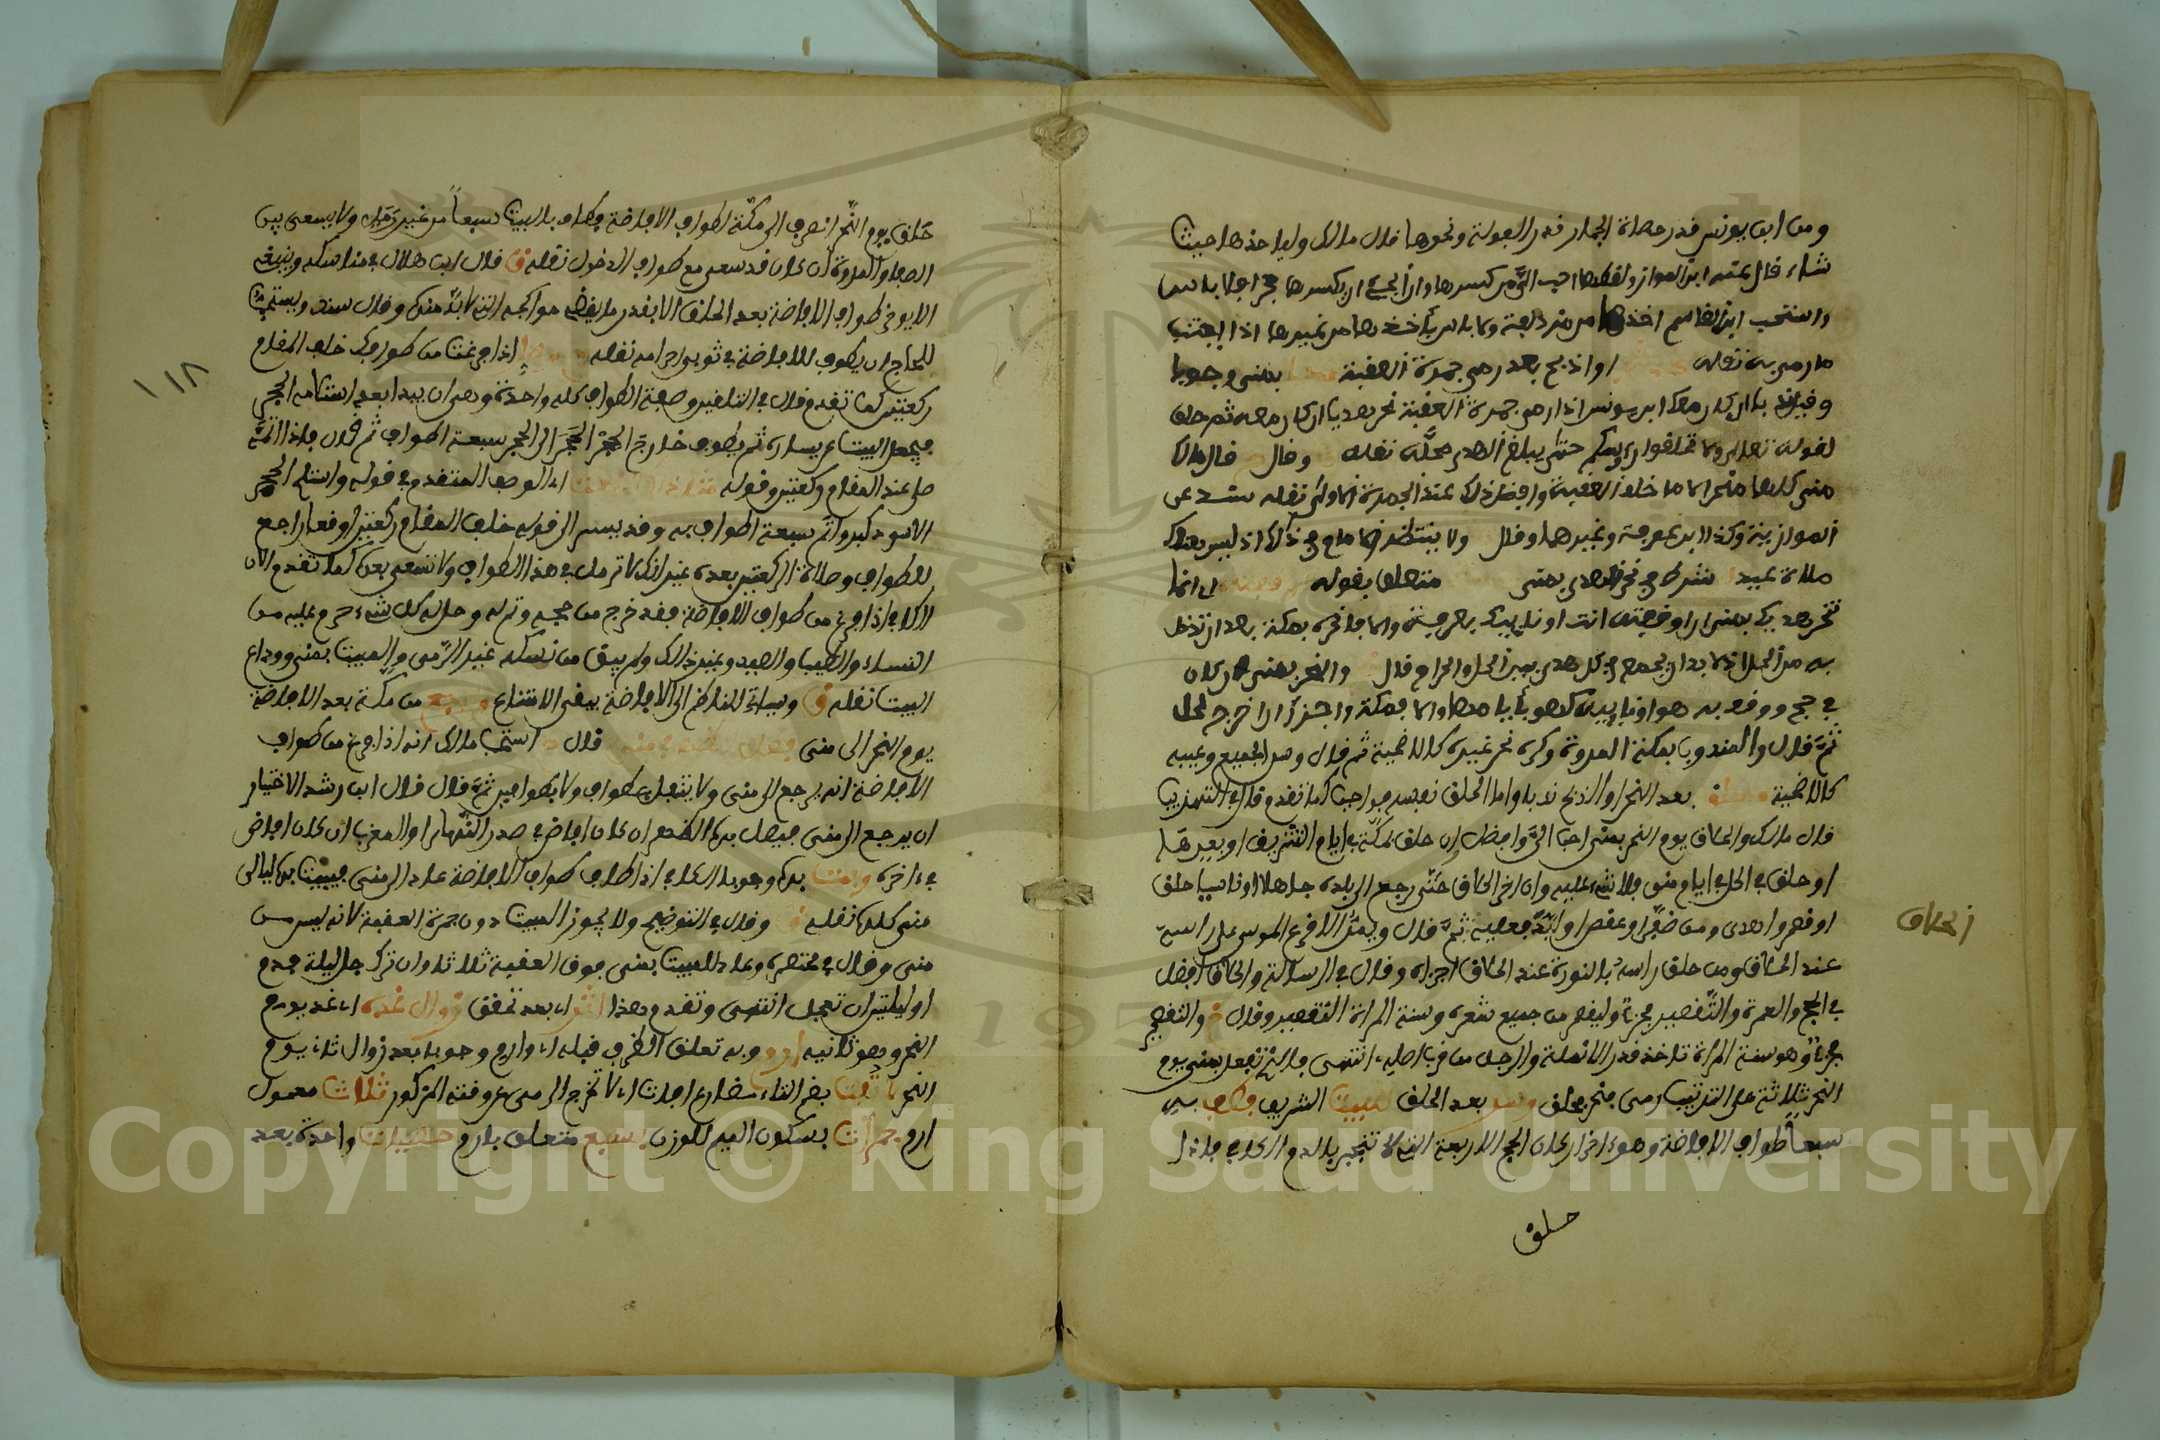 ومن ابن يونس قدر حصاة الجمار قدر الفولة ونحوها قال مالك وليأخذها حيث
شاء قال عنه ابن المواز ولقطها احب الي من كسرها وان احتج ان يكسرها حجرا فلا باس
واستحب ابن القاسم اخذها من مزدلفة ولا باس ياخذها من غيرها اذا اجتنب
ما رمي به نقله او اذبح بعد رمي جمرة العقبة بمنى وجوبا
ان كان معك ابن يونس اذا رمى جمرة العقبة نحر هديا ان كان معه ثم حلق
لقوله تعالى ولا تحلقوا رءوسكم حتى يبلغ الهدي محله نقله وقال قال مالك
منى كلها منحر الا ما خلف العقبة وافضل ذلك عند الجمرة الاولى نقله سند عن
الموازية وكذا ابن عرفة وغيرهما وقال ولا ينتظر الامام في ذلك اذ ليس هناك
صلاة عيد شرط في نحر الهدي بمنى متعلق بقوله اي انما
تنحر هديك بمنى ان اوقفته انت او نايبك بعرفة والا فانحره بمكة بعد ان تدخل
به من الحل اذ لا بد ان يجمع في كل هدي بين الحل والحرام قال والنحر بمنى ان كان
في حج ووقف به هو او نايبه كهو بايامها والا فمكة واجزأ ان اخرج لحل
ثم قال والمندوب بمكة المروة وكره نحر غيره كالاضحية ثم قال وسن الجميع وعيبه
كالاضحية بعد النحر او الذبح ندبا واما الحلق نفسه فواجب كما تقدم قال في التهذيب
قال مالك والحلاق يوم النحر بمنى احب الي وافضل وان حلق بمكة في ايام التشريق او بعدها
او حلق في الحل في ايام منى فلا شيء عليه وان اخر الحلاق حتى رجع الى بلده جاهلا او ناسيا حلق
او قصر واهدى ومن ضفر او عقص او لبد فعليه ثم قال ويمر الاقرع الموسى على راسه
عند الحلاق ومن حلق راسه بالنورة عند الحلاق اجزاه وقال في الرسالة والحلاق افضل
في الحج والعمرة والتقصير يجزئ وليقصر من جميع شعره وسنة المراة التقصير وقال والتقصير
مجزئ وهو سنة المراة تاخذ قدر الانملة والرجل من قرب اصله انتهى فالذي تفعل بمنى يوم
النحر ثلاثة على الترتيب رمي فنحر فحلق وسر بعد الحلق للبيت الشريف فطف به
سبعا طواف الافاضة وهو اخر اركان الحج الاربعة التي لا تنجبر بالدم الكافي فاذا
حلق
الحلاق
حلق يوم النحر انصرف الى مكة لطواف الافاضة وطاف بالبيت سبعا من غير رمل ولا يسعى بين
الصفا والمروة ان كان قد سعى مع طواف الدخول نقله ق قال ابن هلال في مناسكه وينبغي
الا يوخر طواف الافاضة بعد الحلق الا بقدر ما يقضي حوائجه التي لا بد منها وقال سند ويستحب
للحاج ان يطوف للافاضة في ثوبي احرامه نقله اذا فرغت من طوافك خلف المقام
ركعتين كما تقدم قال في التلقين وصفة الطواف كله واحدة وهي ان يبدا بعد استلامه الحجر
فيجعل البيت عن يساره ثم يطوف خارج الحجر من الحجر الى الحجر سبعة اطواف ثم قال فاذا اتمه
صلى عند المقام ركعتين وقوله اي الوصف المتقدم في قوله واستلم الحجر
الاسود كبر واتم سبعة اطواف به وقد يسر الى قوله خلف المقام ركعتين اوقعا راجع
للطواف وصلاة الركعتين بعده غير انك لا ترمل في هذا الطواف ولا تسعى بعده كما تقدم الان
الكافي اذا فرغ من طواف الافاضة فقد خرج من حجه وتم له وحل له كل شيء حرم عليه من
النساء والطيب والصيد وغير ذلك ولم يبق من نسكه غير الرمي والمبيت بمنى ووداع
البيت نقله ق وساءت للناكح الى الافاضة بيفي الامتناع وارجع من مكة بعد الافاضة
يوم النحر الى منى قال استحب مالك انه اذا فرغ من طواف
الافاضة انه يرجع الى منى ولا يتنفل بطواف ولا بطوافين ثم قال قال ابن رشد الاختيار
ان يرجع الى منى فيصلي بها الظهر ان كان افاض في صدر النهار او المغرب ان كان افاض
في اخره وبت بها وجوبا الكافي اذا طاف طواف الافاضة عاد الى منى فيبيت بها ليالي
منى كلها نقله ق وقال في التوضيح ولا يجوز المبيت دون جمرة العقبة لانه ليس من
منى وقال في مختصره وعاد للمبيت بمنى فوق العقبة ثلاثا وان ترك جل ليلة فدم
او ليلتين ان تعجل انتهى وتقدم وهذا اثر اي بعد تحقق زوال غده اي غد يوم
النحر وهو ثانيه ارم وبه تعلق الظرف قبله اي وارم وجوبا بعد زوال ثاني يوم
النحر لا تفت بضم التاء مضارع افات اي لا تخرج الرمي عن وقته المذكور ثلاث معمول
ارم جمرات بسكون الميم للوزن بسبع متعلق بارم حصيات واحدة بعد
١١٨
Copyright © King Saud University